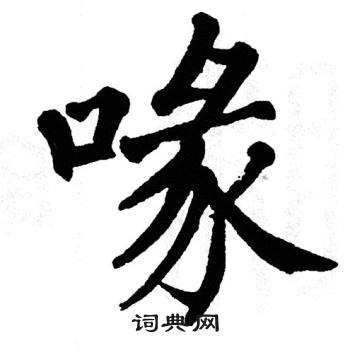 喙
词典网